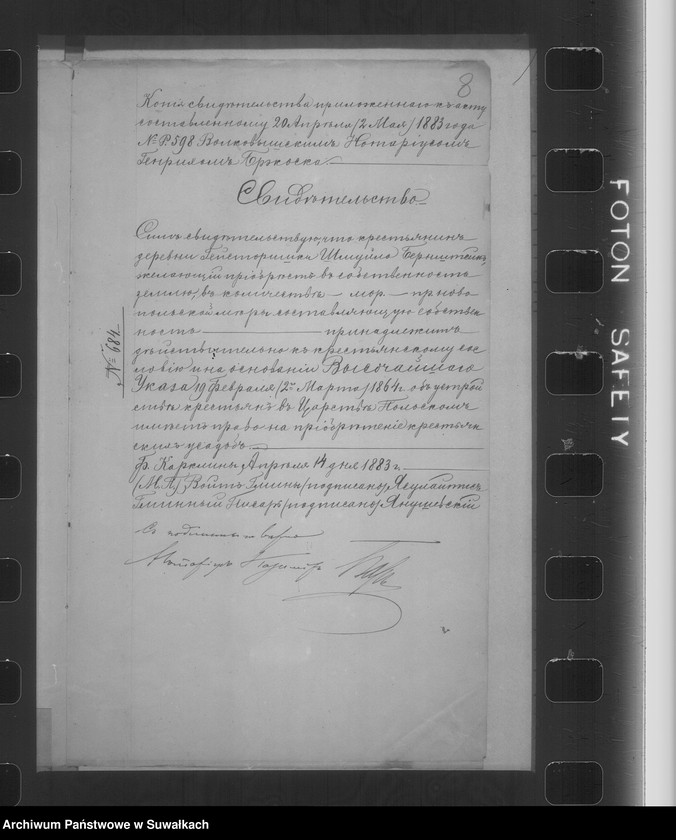 8
Копія свидѣтельства приложеннаго къ акту
составленному 20 Апрѣля (2 Мая) 1883 года
№ 598 Волковышскимъ Нотаріусомъ
Генрихомъ Бржоско.
Свидѣтельство
Симъ свидѣтельствую, что крестьянинъ
деревни Шмуйло Бернштейнъ
желающій пріобрѣсть въ собственность
землю, въ количествѣ — мор. — пр. ново
польской мѣры составляющую собствен
ность принадлежитъ
дѣйствительно къ крестьянскому сос
ловію и на основаніи Высочайшаго
Указа 19 Февраля (2 Марта) 1864 г. объ устрой
ствѣ крестьянъ въ Царствѣ Польскомъ
имѣетъ право на пріобрѣтеніе крестьян
скихъ усадьбъ.
Ф. Апрѣля 14 дня 1883 г.
(М.П.) Войтъ Гмины (подписано)
Гминный Писарь (подписано) Янушевскій
Съ подлиннымъ вѣрно
№ 684
FOTON SAFETY
Archiwum Państwowe w Suwałkach